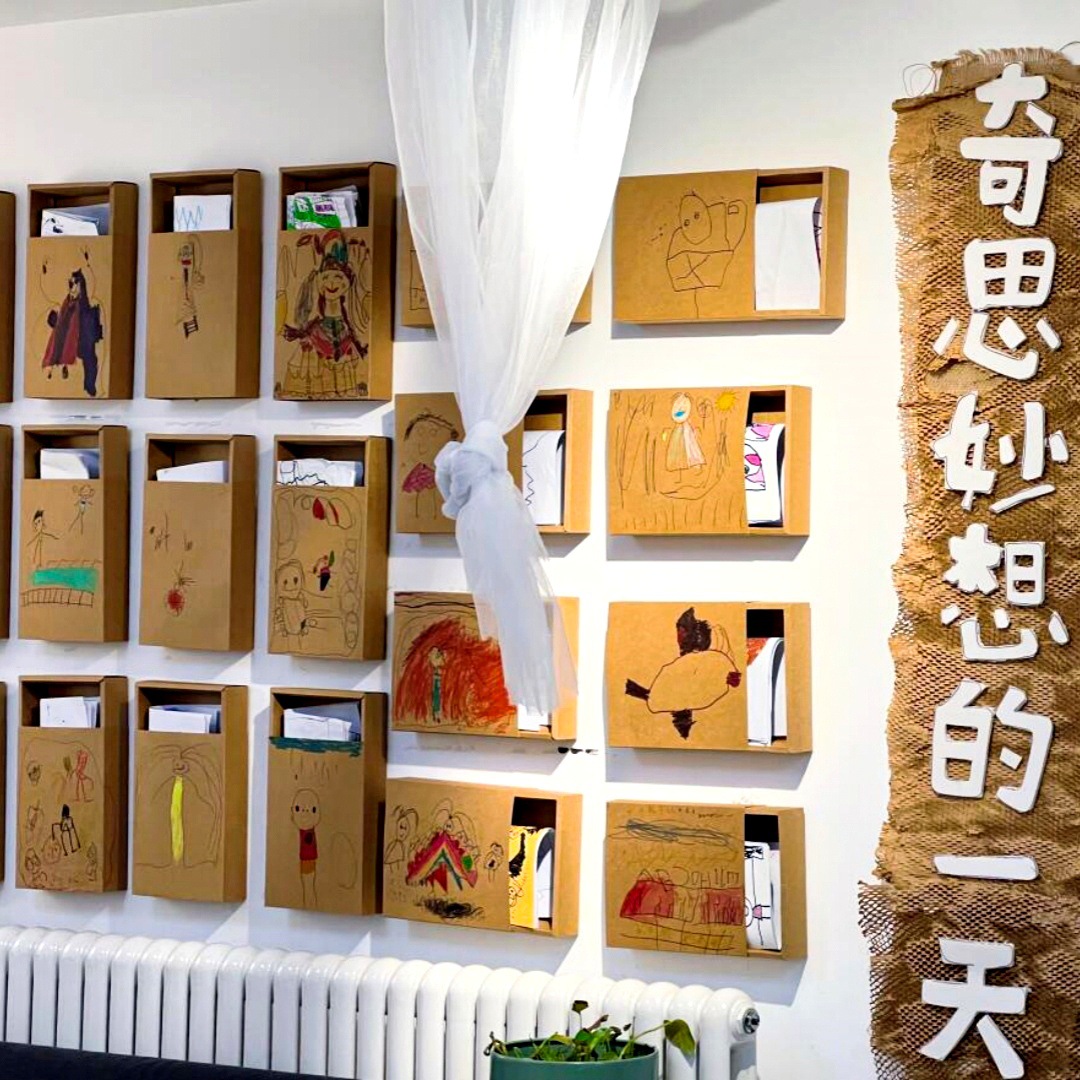 奇思妙想的一天